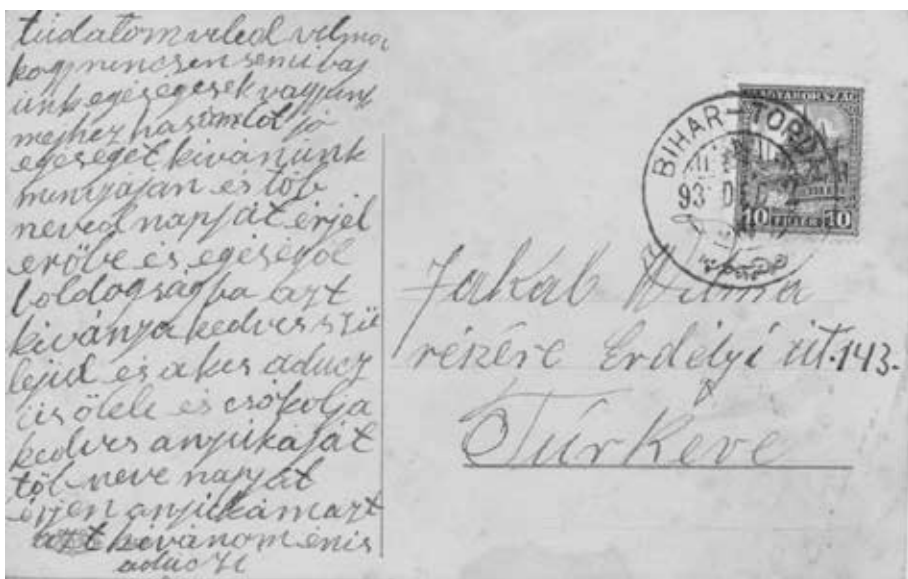 tudatom veled vilma
hogy nincsen semi baj
unk egésegesek vagyunk
mejhez hasomlót jó
egeseget kivánunk
minyáján és töb
neved napját érjél
erőbe és egéségöl
boldogságba azt
kivánja kedves szü
lejid és a kis aducz
is ölele és csókolja
kedves anyukáját
töb neve napját
érjen anyukám azt
azt kivánom én is
aducz
BIHAR-TORDA
93 DEC 2
MAGYARORSZÁG
10 FILLÉR 10
Jakab Vilma
részére Erdélyi út. 143.
Túrkeve